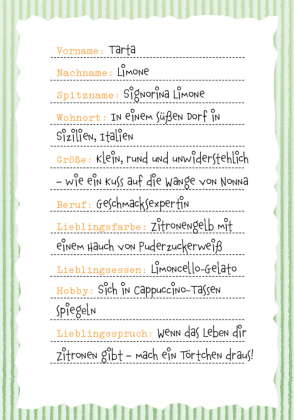 Vorname: Tarta
Nachname: Limone
Spitzname: Signorina Limone
Wohnort: In einem süßen Dorf in
Sizilien, Italien
Größe: Klein, rund und unwiderstehlich
– wie ein Kuss auf die Wange von Nonna
Beruf: Geschmacksexpertin
Lieblingsfarbe: Zitronengelb mit
einem Hauch von Puderzuckerweiß
Lieblingsessen: Limoncello-Gelato
Hobby: Sich in Cappuccino-Tassen
spiegeln
Lieblingsspruch: Wenn das Leben dir
Zitronen gibt – mach ein Törtchen draus!